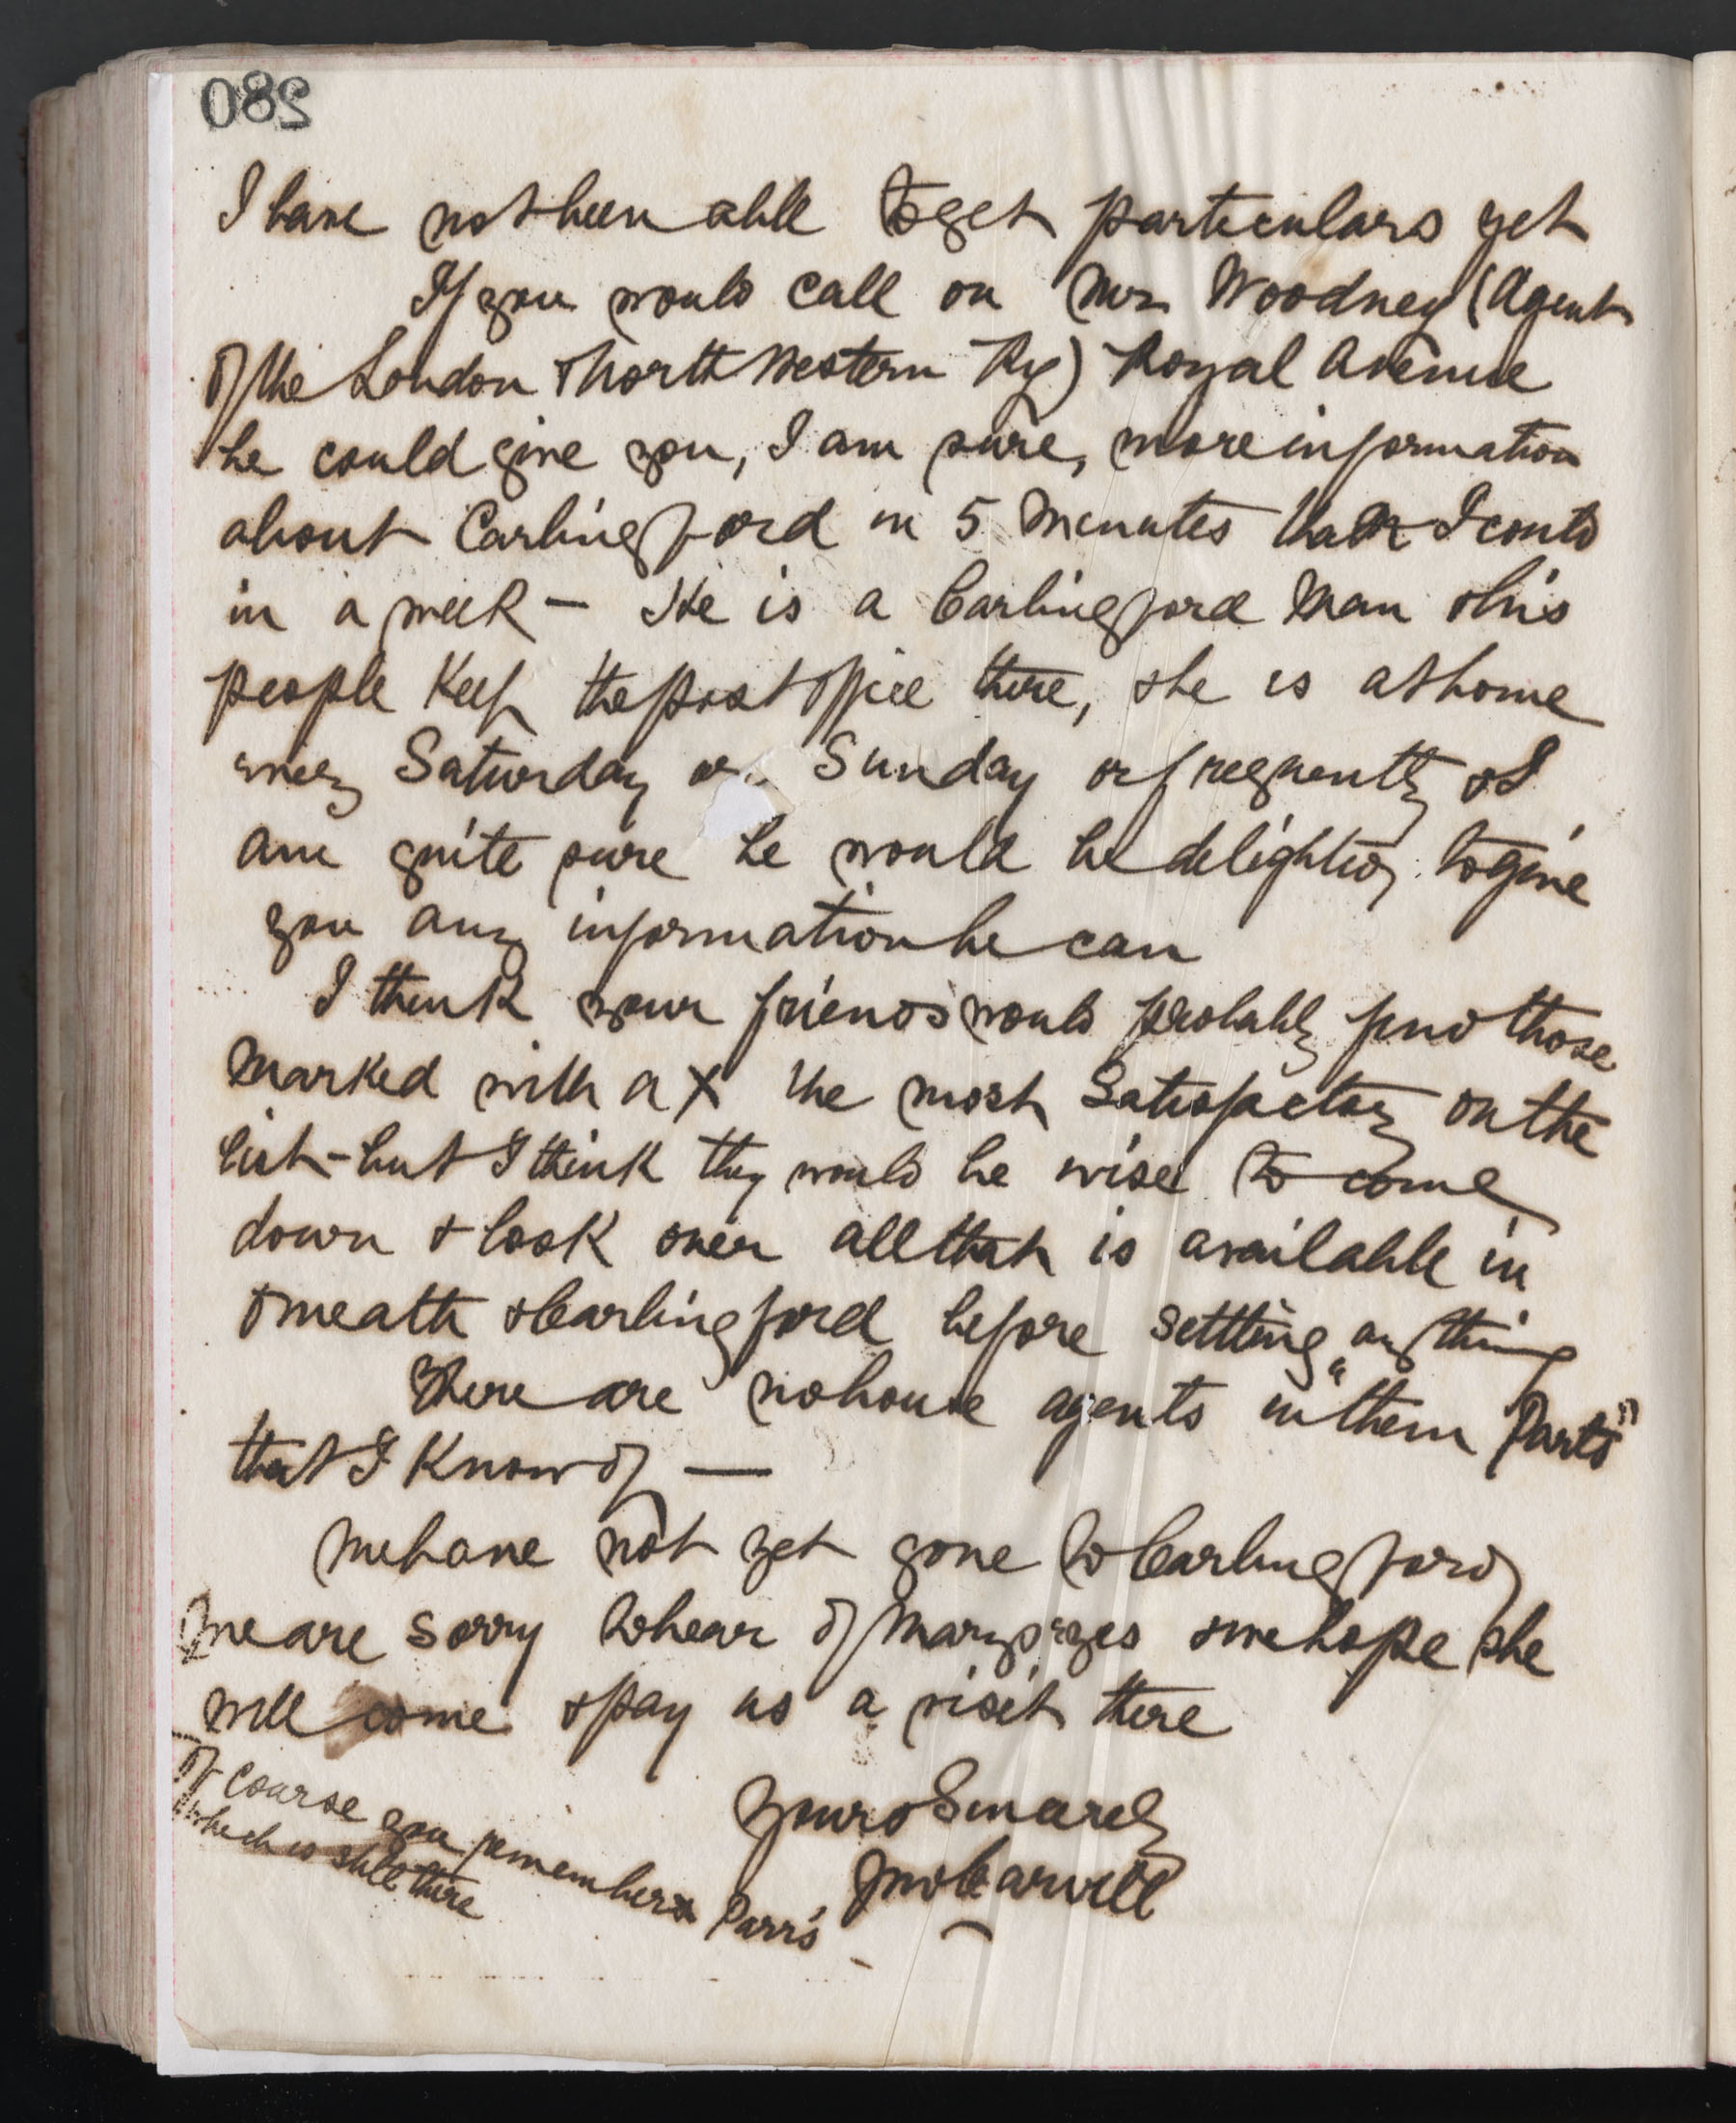 280
I have not been able to get particulars yet
If you would call on Mr Woodney (Agent
of the London & North Western Ry) Royal Avenue
he could give you, I am sure, more information
about Carlingford in 5 minutes than I could
in a week – He is a Carlingford man & his
people keep the post office there, & he is at home
every Saturday or Sunday or frequently & I
am quite sure he would be delighted to give
you any information he can
I think your friends would probably find those
marked with a X the most satisfactory on the
list – but I think they would be wise to come
down & look over all that is available in
Omeath & Carlingford before settling anything
There are no house agents in "them Parts"
that I know of —
We have not yet gone to Carlingford
We are sorry to hear of Marys eyes & we hope she
will come & pay us a visit there
Yours Sincerely
Jno Carvill
Of course you remember Parr's –
which is still there